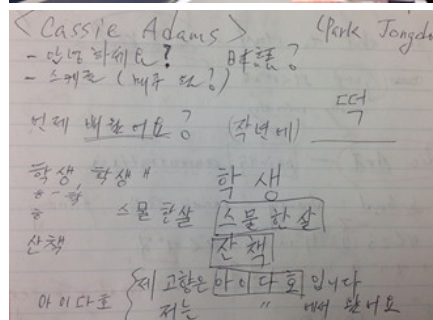 < Cassie Adams > (Park Jongdu
- 안녕하세요?
- 스케줄 (매주 월?)
언제 배웠어요? (작년에) 떡
학생, 학생 " 학생
스물 한살 스물 한 살
산책 산책
아이다호 { 제 고향은 아이다호 입니다
저는 " 에서 왔어요